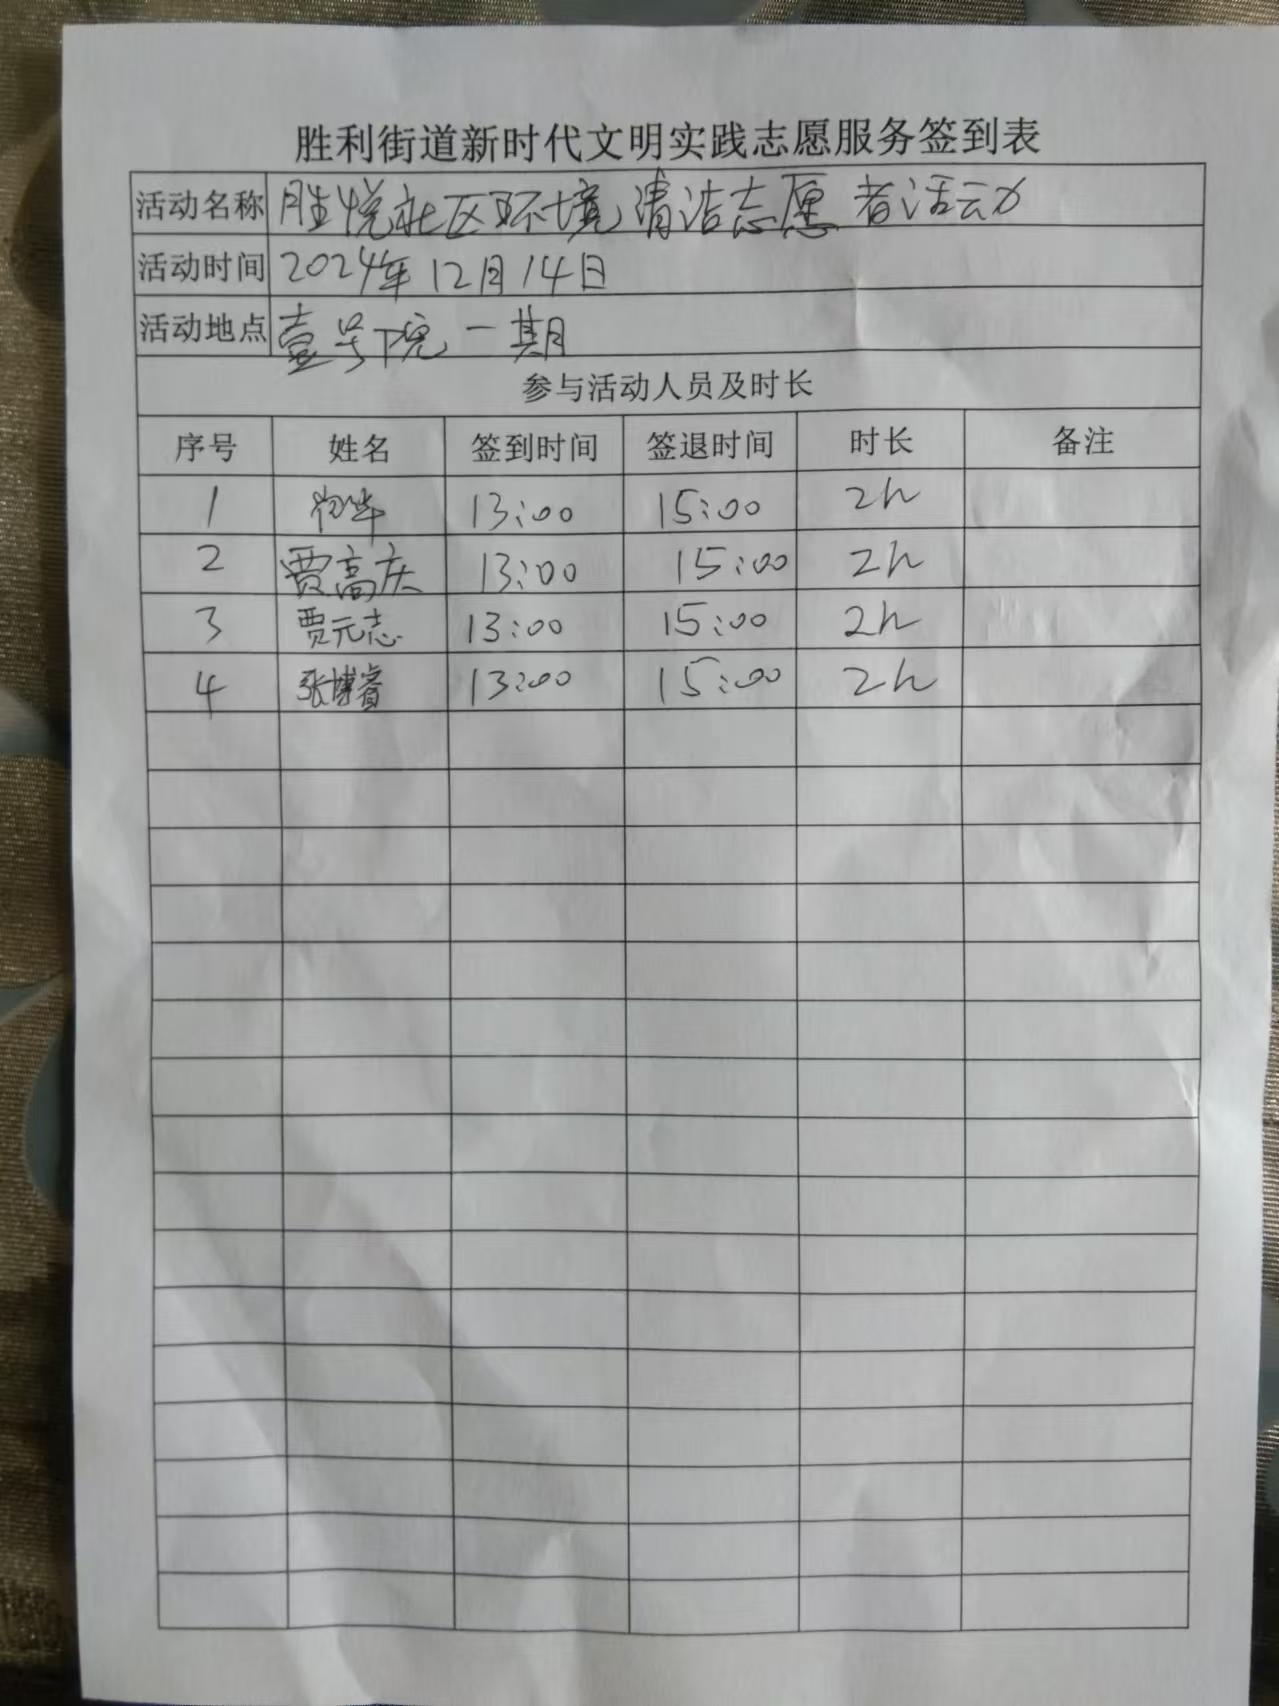 胜利街道新时代文明实践志愿服务签到表
活动名称 胜悦社区环境清洁志愿者活动
活动时间 2024年12月14日
活动地点 壹号院一期
参与活动人员及时长
序号 姓名 签到时间 签退时间 时长 备注
1 13:00 15:00 2h
2 贾高庆 13:00 15:00 2h
3 贾元志 13:00 15:00 2h
4 张博睿 13:00 15:00 2h